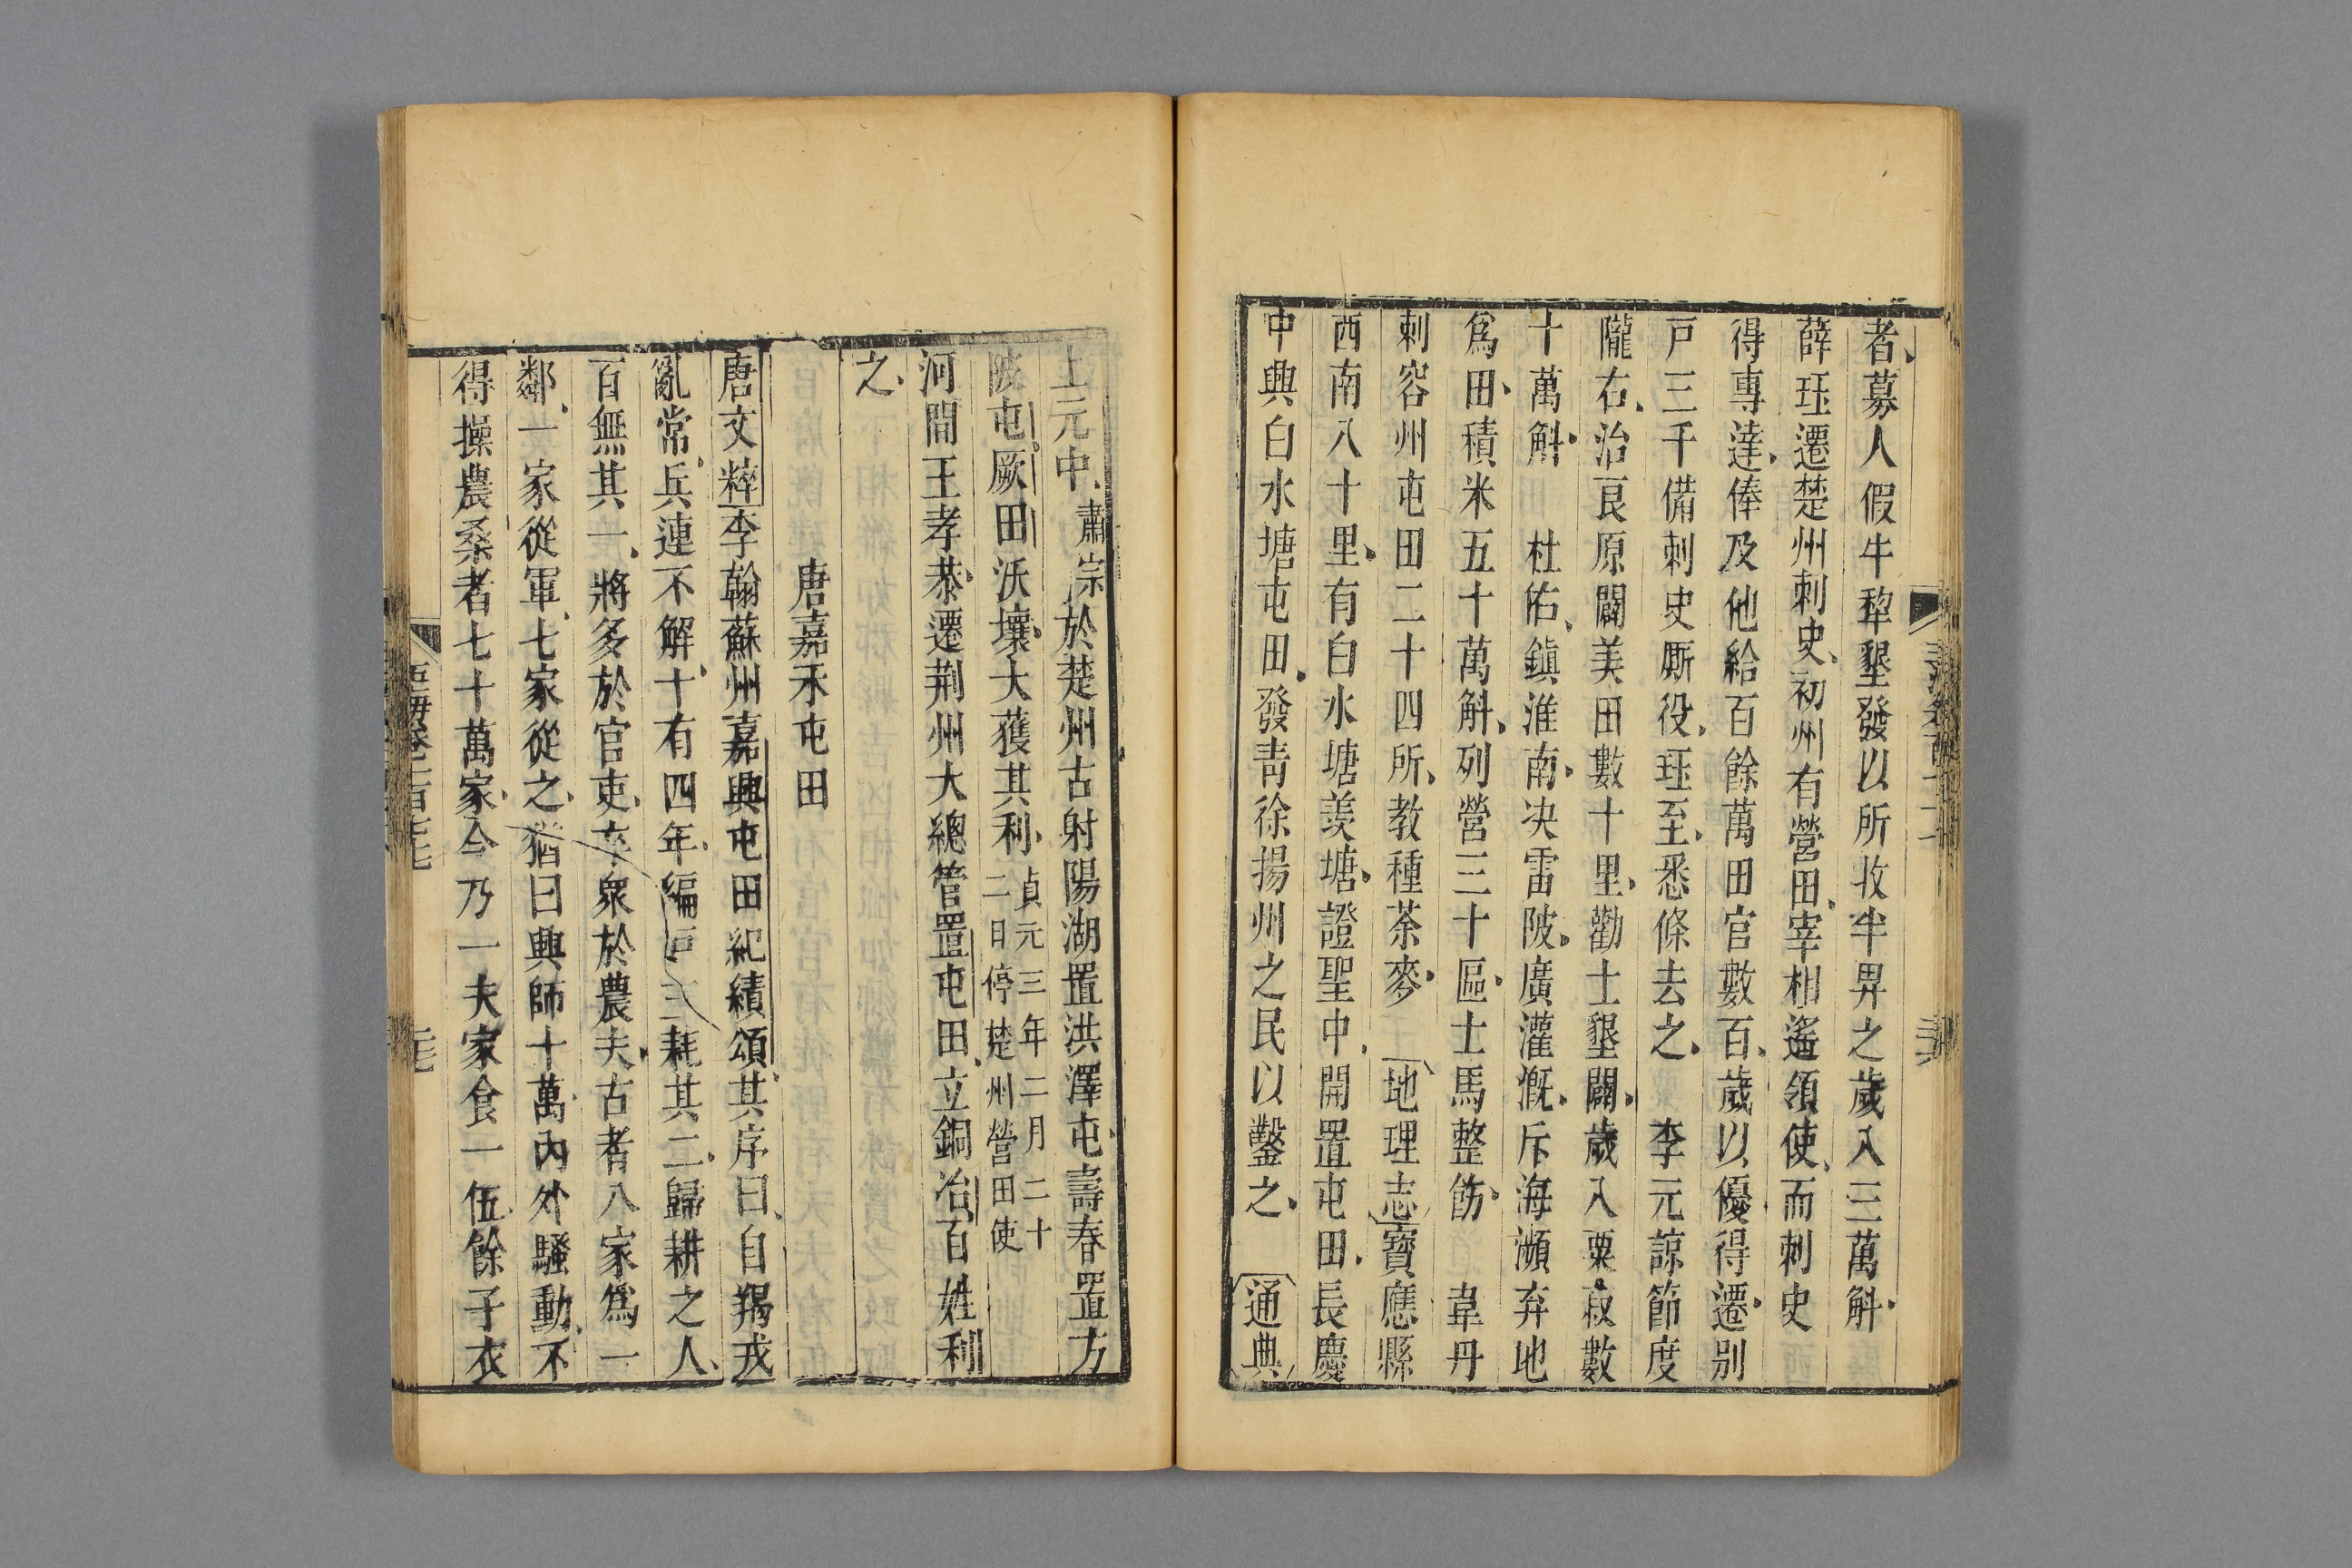 者募人假牛犂墾發以所收半畀之歲入三萬斛
薛珏遷楚州刺史初州有營田宰相遙領使而刺史
得專達俸及他給百餘萬田官數百歲以優得遷别
戸三千備刺史厮役珏至悉條去之 李元諒節度
隴右治艮原闢美田數十里勸士墾闢歲入粟菽數
十萬斛 杜佑鎭淮南决雷陂廣灌溉斥海瀕弃地
爲田積米五十萬斛列營三十區士馬整飭 韋丹
刺容州屯田二十四所教種茶麥 地理志寶應縣
西南八十里有白水塘羨塘證聖中開置屯田長慶
中興白水塘屯田發青徐揚州之民以鑿之 通典
上元中肅宗於楚州古射陽湖置洪澤屯壽春置芀
陂屯厥田沃壤大獲其利貞元三年二月二十
二日停楚州營田使
河間王孝恭遷荆州大總管置屯田立銅冶百姓利
之
唐嘉禾屯田
唐文粹李翰蘇州嘉興屯田紀績頌其序曰自羯戎
亂常兵連不解十有四年編戸三耗其二歸耕之人
百無其一將多於官吏卒衆於農夫古者八家爲一
鄰一家從軍七家從之猶曰興師十萬内外騷動不
得操農桑者七十萬家今乃一夫家食一伍餘子衣
玉海卷一百七十七